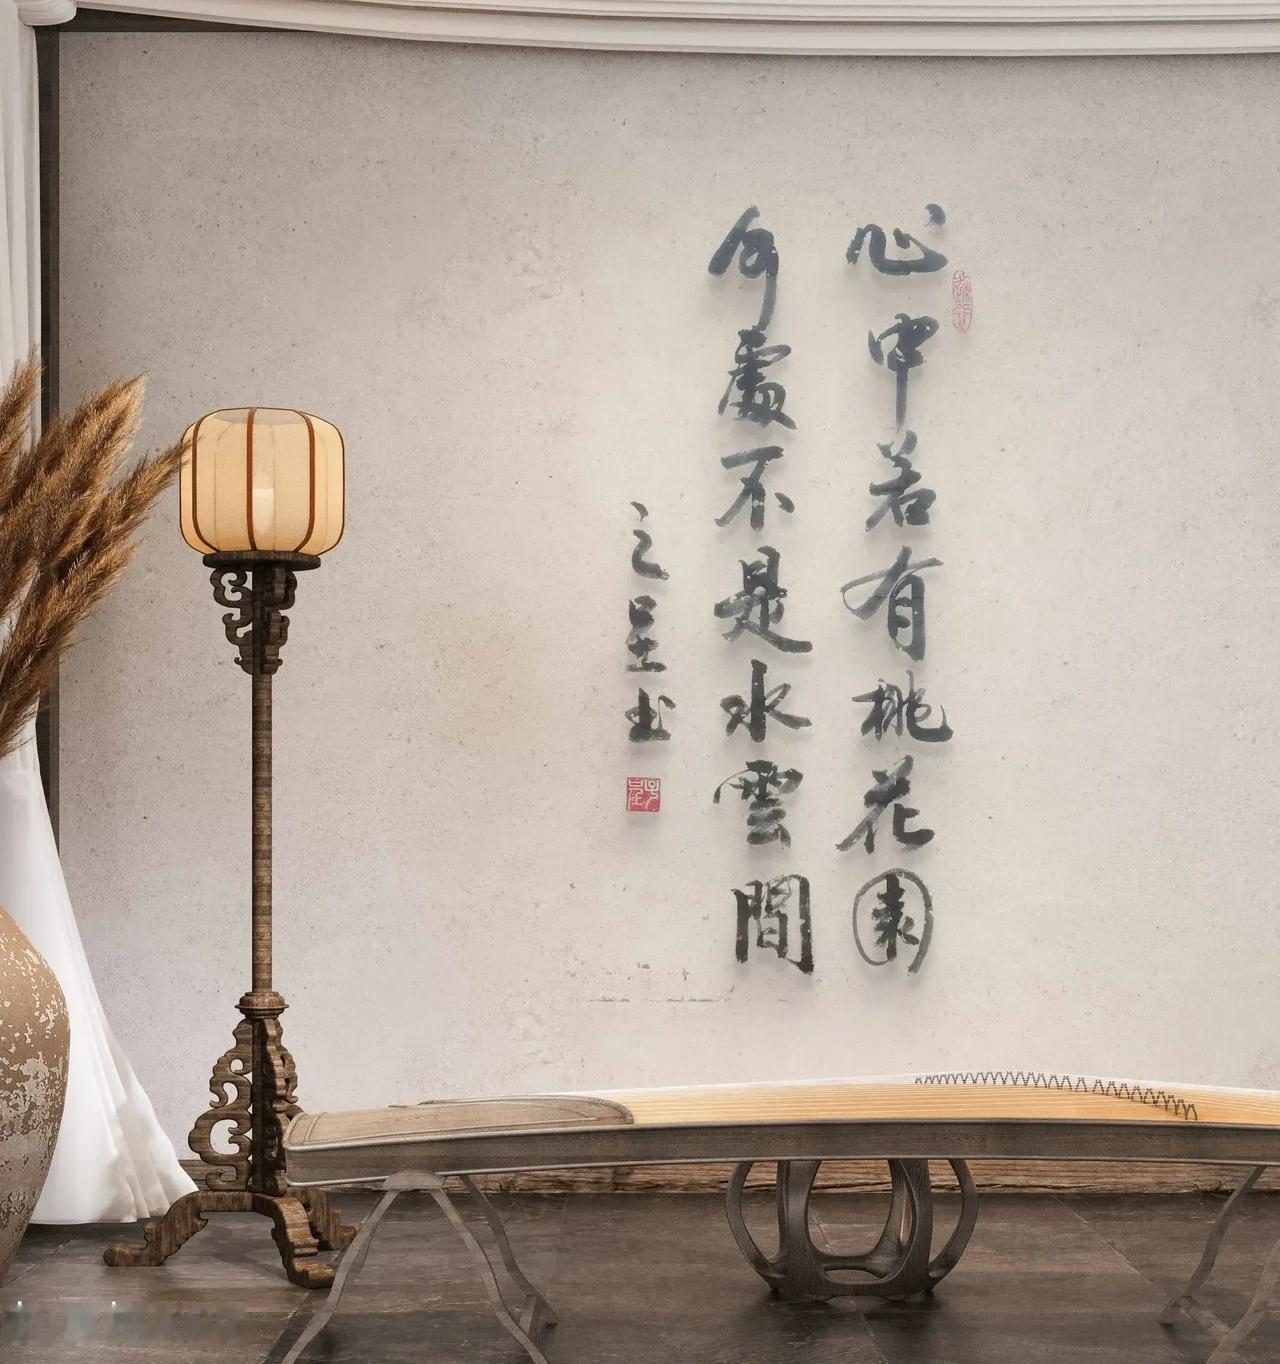 心中若有桃花園
何處不是水雲間
之呈书